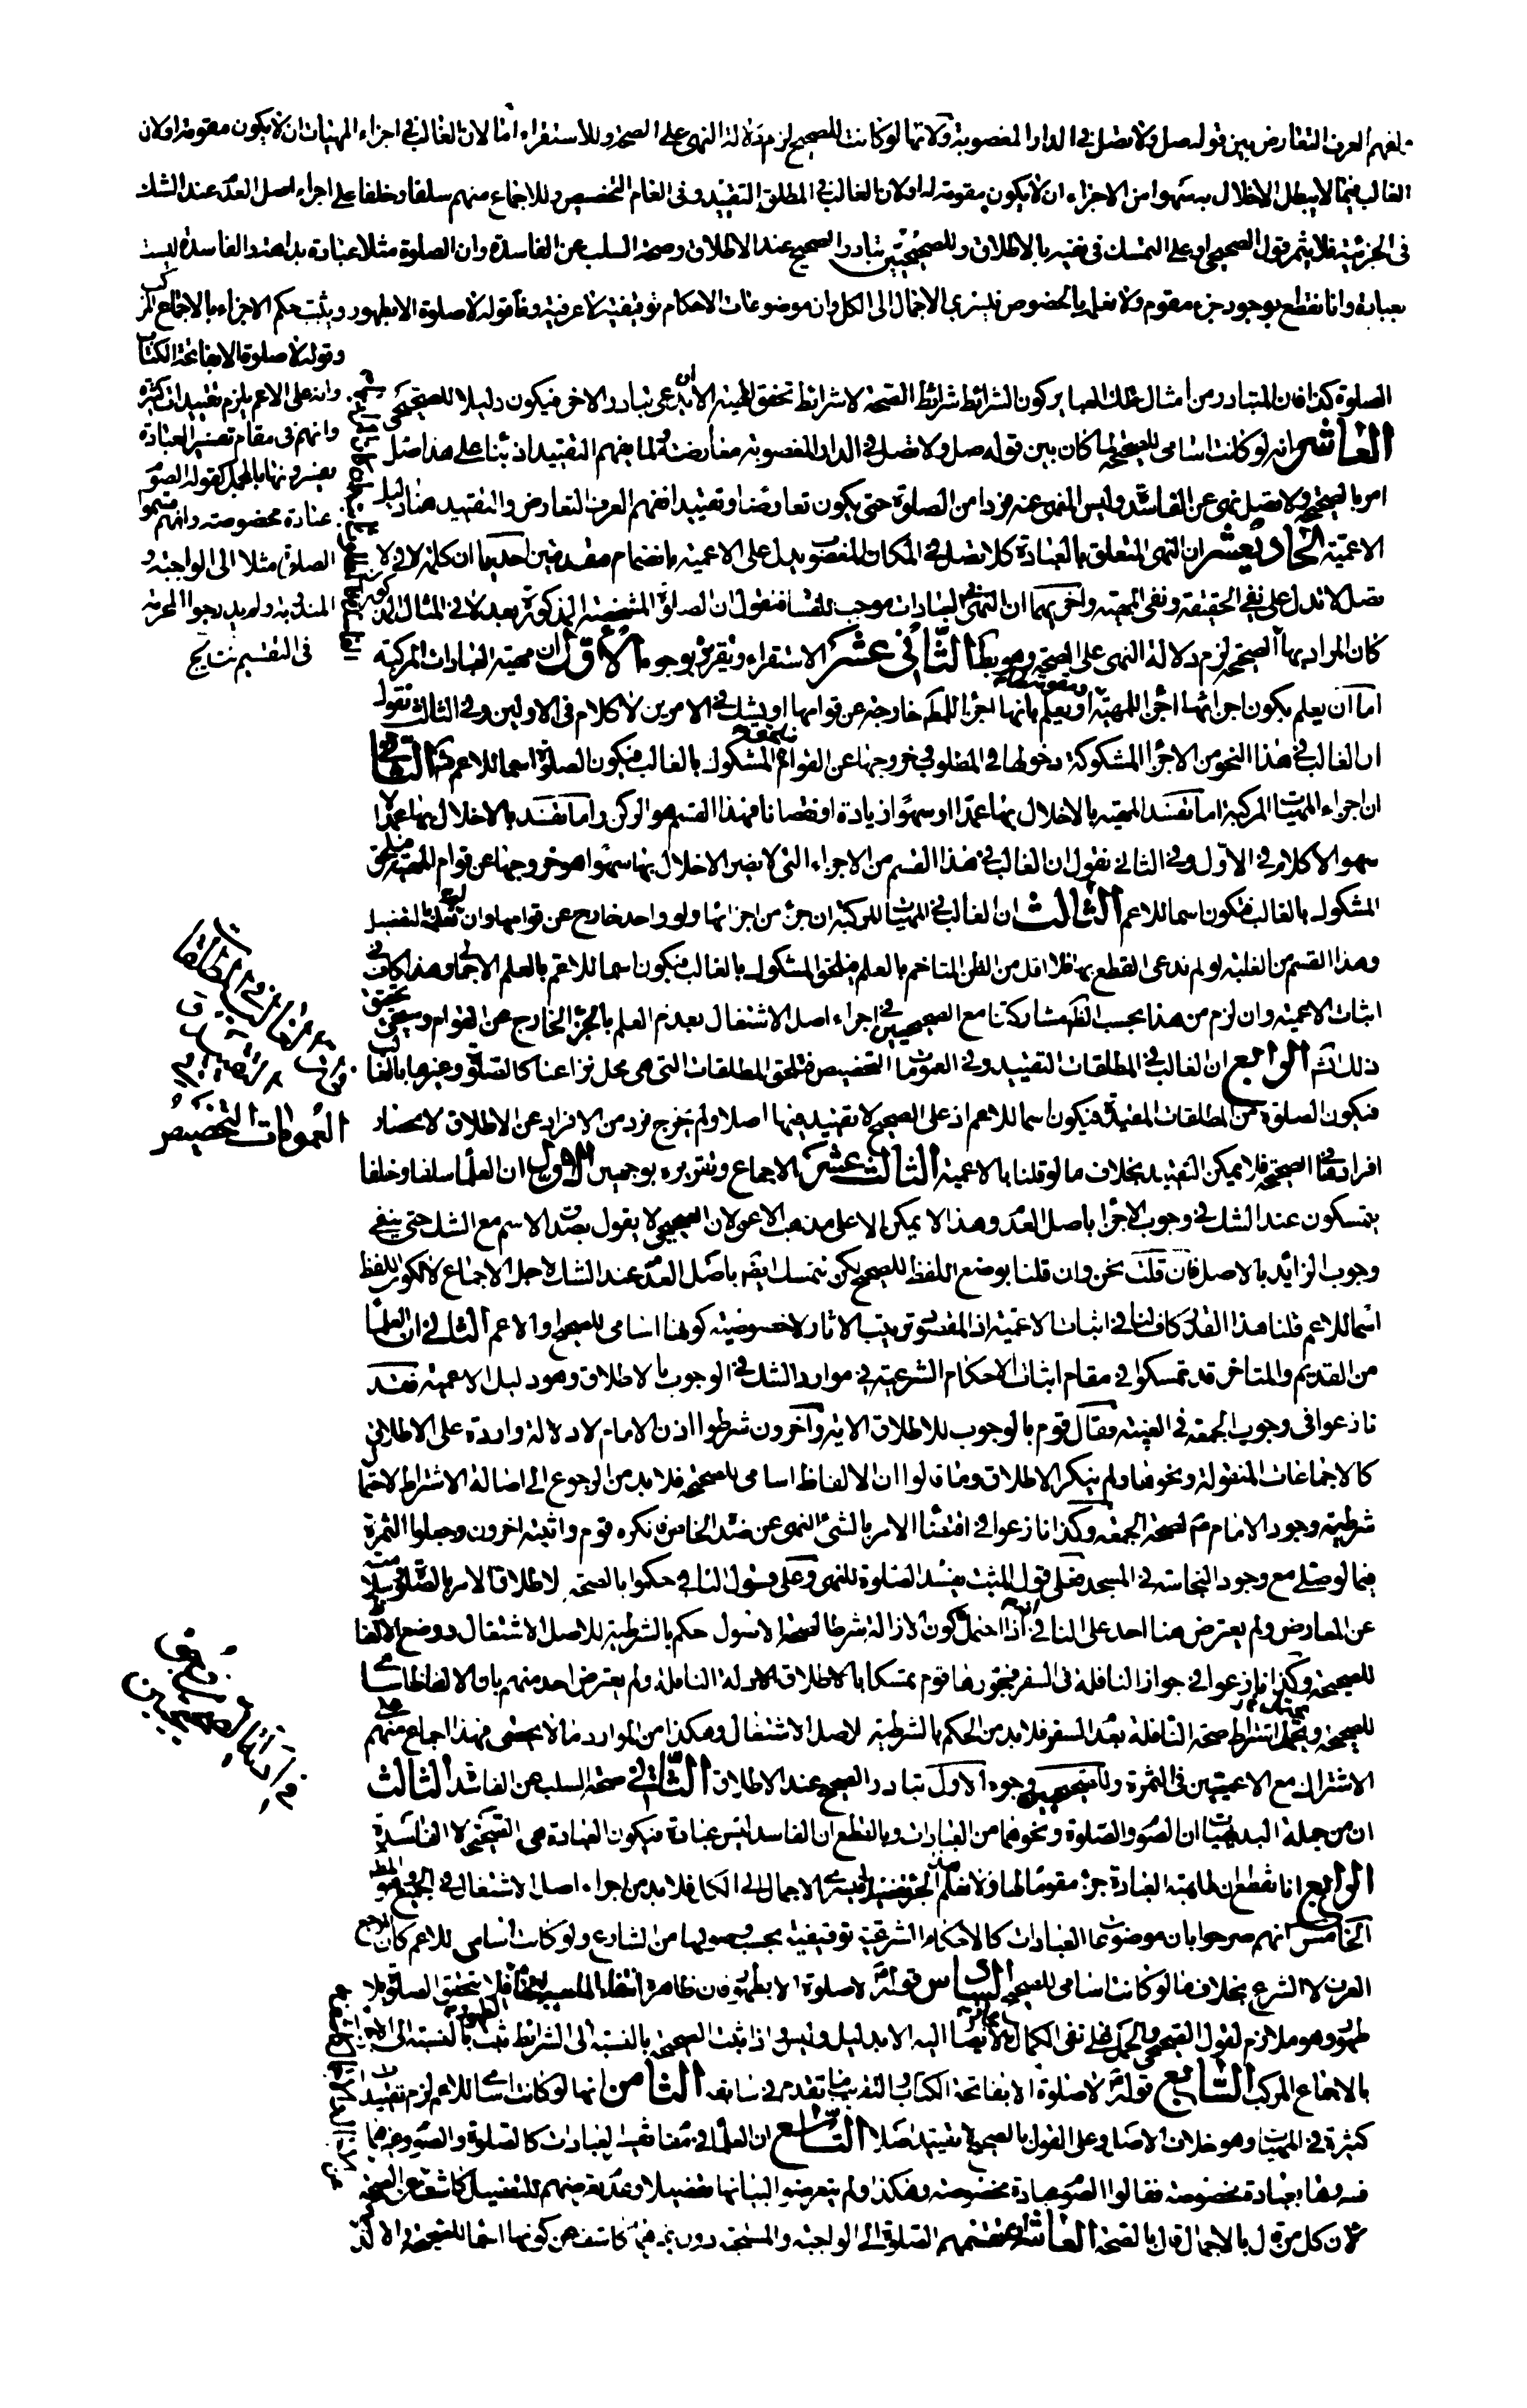 بفهم العرف التعارض بين قوله صل ولا تصل في الدار المغصوبة ولانها لو كانت للصحيح لزم دلالة النهى على الصحة وللاستقراء اما لان الغالب في اجزاء المهيات ان لا يكون مقومة او لان
الغالب فيما لا يبطل الاخلال به سهوا من الاجزاء ان لا يكون مقومة له او لان الغالب في المطلق التقييد وفى العام التخصيص وللاجماع منهم سلفا وخلفا على اجراء اصل العدم عند الشك
فى الجزئية فلا يثمر قول الصحيحى او على التمسك في نفيه بالاطلاق وللصحيحيين تبادر الصحيح عند الاطلاق وصحة السلب عن الفاسدة وان الصلوة مثلا عبادة بداهة والفاسدة ليست
بعبادة وانا نقطع بوجود جزء مقوم ولا نعلمه بالخصوص فيسرى الاجمال الى الكل وان موضوعات الاحكام توقيفية لا عرفية وقوله لا صلوة الا بطهور ويثبت حكم الاجزاء بالاجماع المركب
وقوله لا صلوة الا بفاتحة الكتاب
وانه على الاعم يلزم تقييدات كثيرة
وانهم في مقام تفسير العبادة
يفسرونها بالمجمل كقوله الصوم
عبادة مخصوصة وانهم قسموا
الصلوة مثلا الى الواجبة و
المندوبة ولم يدرجوا المحرمة
فى التقسيم
الصلوة كذا فان المتبادر من امثال تلك العبارة كون الشرائط شرائط الصحة لا شرائط تحقق المهية الا ان يدعى تبادر الاخر فيكون دليلا للصحيحى
العاشر انه لو كانت اسامى للصحيحة لما كان بين قوله صل ولا تصل في الدار المغصوبة معارضة ولما يفهم التقييد اذ بناء على هذا صل
امر بالصحيحة ولا تصل نهى عن الفاسدة وليس المنهى عنه فردا من الصلوة حتى يكون تعارضا وتقييدا ففهم العرف التعارض والتقييد هنا دليل
الاعمية الحاديعشر ان النهى المتعلق بالعبادة كلا تصل في المكان المغصوب يدل على الاعمية بانضمام مقدمتين احديهما ان كلمة لا في لا
تصل لا تدل على نفي الحقيقة ونفى المهية واخريهما ان النهى في العبادات موجب للفساد فنقول ان الصلوة المنهية المذكورة بعد لا في المثال المذكور لو
كان المراد بها الصحيحة لزم دلالة النهى على الصحة وهو بط الثانى عشر الاستقراء وتقريره بوجوه الاول ان مهية العبادات المركبة
اما ان يعلم بكون اجزائها اجزاء للمهية ومقومة لها او يعلم بانها اجزاء للكل خارجة عن قوامها او يشك في الامرين لا كلام في الاولين وفي الثالث نقول
ان الغالب في هذا النحو من الاجزاء المشكوكة دخولها في المطلوب خروجها عن القوام فيلحق المشكوك بالغالب فيكون الصلوة اسما للاعم الثاني
ان اجزاء المهيات المركبة اما تفسد المهية بالاخلال بها عمدا او سهوا زيادة او نقصانا فهذا القسم هو الركن واما تفسد بالاخلال بها عمدا لا
سهوا لا كلام في الاول وفي الثاني نقول ان الغالب في هذا القسم من الاجزاء التى لا يضر الاخلال بها سهوا هو خروجها عن قوام المهية فيلحق
المشكوك بالغالب فيكون اسما للاعم الثالث ان الغالب في المهيات المركبة ان جزء من اجزائها ولو واحد خارج عن قوامها وان لم نعلمه بالتفصيل
وهذا القسم من الغلبة لو لم ندعى القطع بها فلا اقل من الظن المتاخم بالعلم فيلحق المشكوك بالغالب فيكون اسما للاعم بالعلم الاجمالى وهذا كاف في
اثبات الاعمية وان لزم من هذا بحسب الظ مشاركتنا مع الصحيحيين في اجراء اصل الاشتغال بعدم العلم بالجزء الخارج عن القوام وسيجئ تحقيق
ذلك ثم الرابع ان الغالب في المطلقات التقييد وفى العمومات التخصيص فتلحق المطلقات التى هي محل نزاعنا كالصلوة وغيرها بالغالب
العمومات التخصيص
فيكون الصلوة من المطلقات المقيدة فيكون اسما للاعم اذ على الصحيح لا تقييد فيها اصلا ولم يخرج فرد من الافراد عن الاطلاق لانحصار
افرادها في الصحيحة فلا يمكن التقييد بخلاف ما لو قلنا بالاعمية الثالث عشر الاجماع وتقريره بوجهين الاول ان العلما سلفا وخلفا
يتمسكون عند الشك في وجوب الاجزاء باصل العدم وهذا لا يمكن الا على مذهب الاعمى لان الصحيحى لا يقول بصدق الاسم مع الشك حتى ينفى
وجوب الزائد بالاصل فان قلت نحن وان قلنا بوضع اللفظ للصحيح لكن نتمسك ايضا باصل العدم عند الشك لاجل الاجماع لا لكون اللفظ
اسما للاعم قلنا هذا القدر كاف لنا في اثبات الاعمية اذ المقصود ترتيب الاثار لا خصوصية كونها اسامى للصحيح او الاعم الثانى ان العلما
من القديم والمتاخر قد تمسكوا في مقام اثبات الاحكام الشرعية في موارد الشك في الوجوب بالاطلاق وهو دليل الاعمية فقد
نازعوا في وجوب الجمعة في الغيبة فقال قوم بالوجوب للاطلاق الاية وآخرون شرطوا اذن الامام لادلة واردة على الاطلاق
كالاجماعات المنقولة ونحوها ولم ينكر الاطلاق وما قالوا ان الالفاظ اسامى للصحيحة فلا بد من الرجوع الى اصالة الاشتراط لاحتمال
شرطية وجود الامام لصحة الجمعة وكذا نازعوا في اقتضاء الامر بالشئ النهى عن ضده الخاص فانكره قوم واثبته اخرون وجعلوا الثمرة
فيما لو صلى مع وجود النجاسة في المسجد فعلى قول المثبت يفسد الصلوة للنهى وعلى قول النافي حكموا بالصحة لاطلاق الامر بالصلوة سلامته
عن المعارض ولم يعترض هنا احد على النافي اذا احتمل كون الازالة شرطا لصحة الصلوة حكم بالشرطية للاصل الاشتغال ووضع الالفاظ
للصحيحة وكذا نازعوا في جواز النافلة في السفر فجوزها قوم تمسكا بالاطلاق الادلة النافلة ولم يعترض احد منهم بان الالفاظ اسامى
للصحيحة ويحتمل اشتراط صحة النافلة بعدم السفر فلا بد من الحكم بالشرطية لاصل الاشتغال وهكذا من الموارد مما لا يحصى فهذا اجماع منهم على
الاشتراك مع الاعميين في الثمرة وللصحيحيين وجوه الاول تبادر الصحيح عند الاطلاق الثانى صحة السلب عن الفاسدة الثالث
ان من جملة البديهيات ان الصوم والصلوة ونحوهما من العبادات وبالقطع ان الفاسد ليس عبادة فيكون العبادة هى الصحيحة لا الفاسدة
الرابع انا نقطع ان لمهية العبادة جزء مقوما لها ولا نعلم الجزء تفصيلا فيسرى الاجمال الى الكل فلا بد من اجراء اصل الاشتغال في الجميع وهو المط
الخامس انهم صرحوا بان موضوعات العبادات كالاحكام الشرعية توقيفية يجب وصولها من الشارع ولو كانت اسامى للاعم كان المرجع
العرف لا الشرع بخلاف ما لو كانت اسامى للصحيح السادس قوله لا صلوة الا بطهور فان ظاهر انتفاء المهية فلا يتحقق الصلوة بلا
طهور وهو ملازم لقول الصحيحى والحمل على نفى الكمال لا يصار اليه الا بدليل وليس اذا ثبت الصحيحة بالنسبة الى الشرائط ثبت بالنسبة الى الاجزاء
بالاجماع المركب السابع قوله لا صلوة الا بفاتحة الكتاب والتقريب ما تقدم في سابقه الثامن انها لو كانت اسامى للاعم لزم تقييدات
كثيرة في المهيات وهو خلاف الاصل وعلى القول بالصحيح لا تقييد اصلا التاسع ان العلما في مقام تفسير العبادات كالصلوة والصوم وغيرهما
فسروها بعبادة مخصوصة فقالوا الصوم عبادة مخصوصة وهكذا ولم يتعرضوا لبيانها تفصيلا وعدم تعرضهم للتفصيل كاشف عن الصحيحة
لان كل من قال بالاجمال قال بالصحة العاشر تقسيمهم الصلوة الى الواجبة والمستحبة دون غيرهما كاشف عن كونها اسما للصحيحة والا لذكر